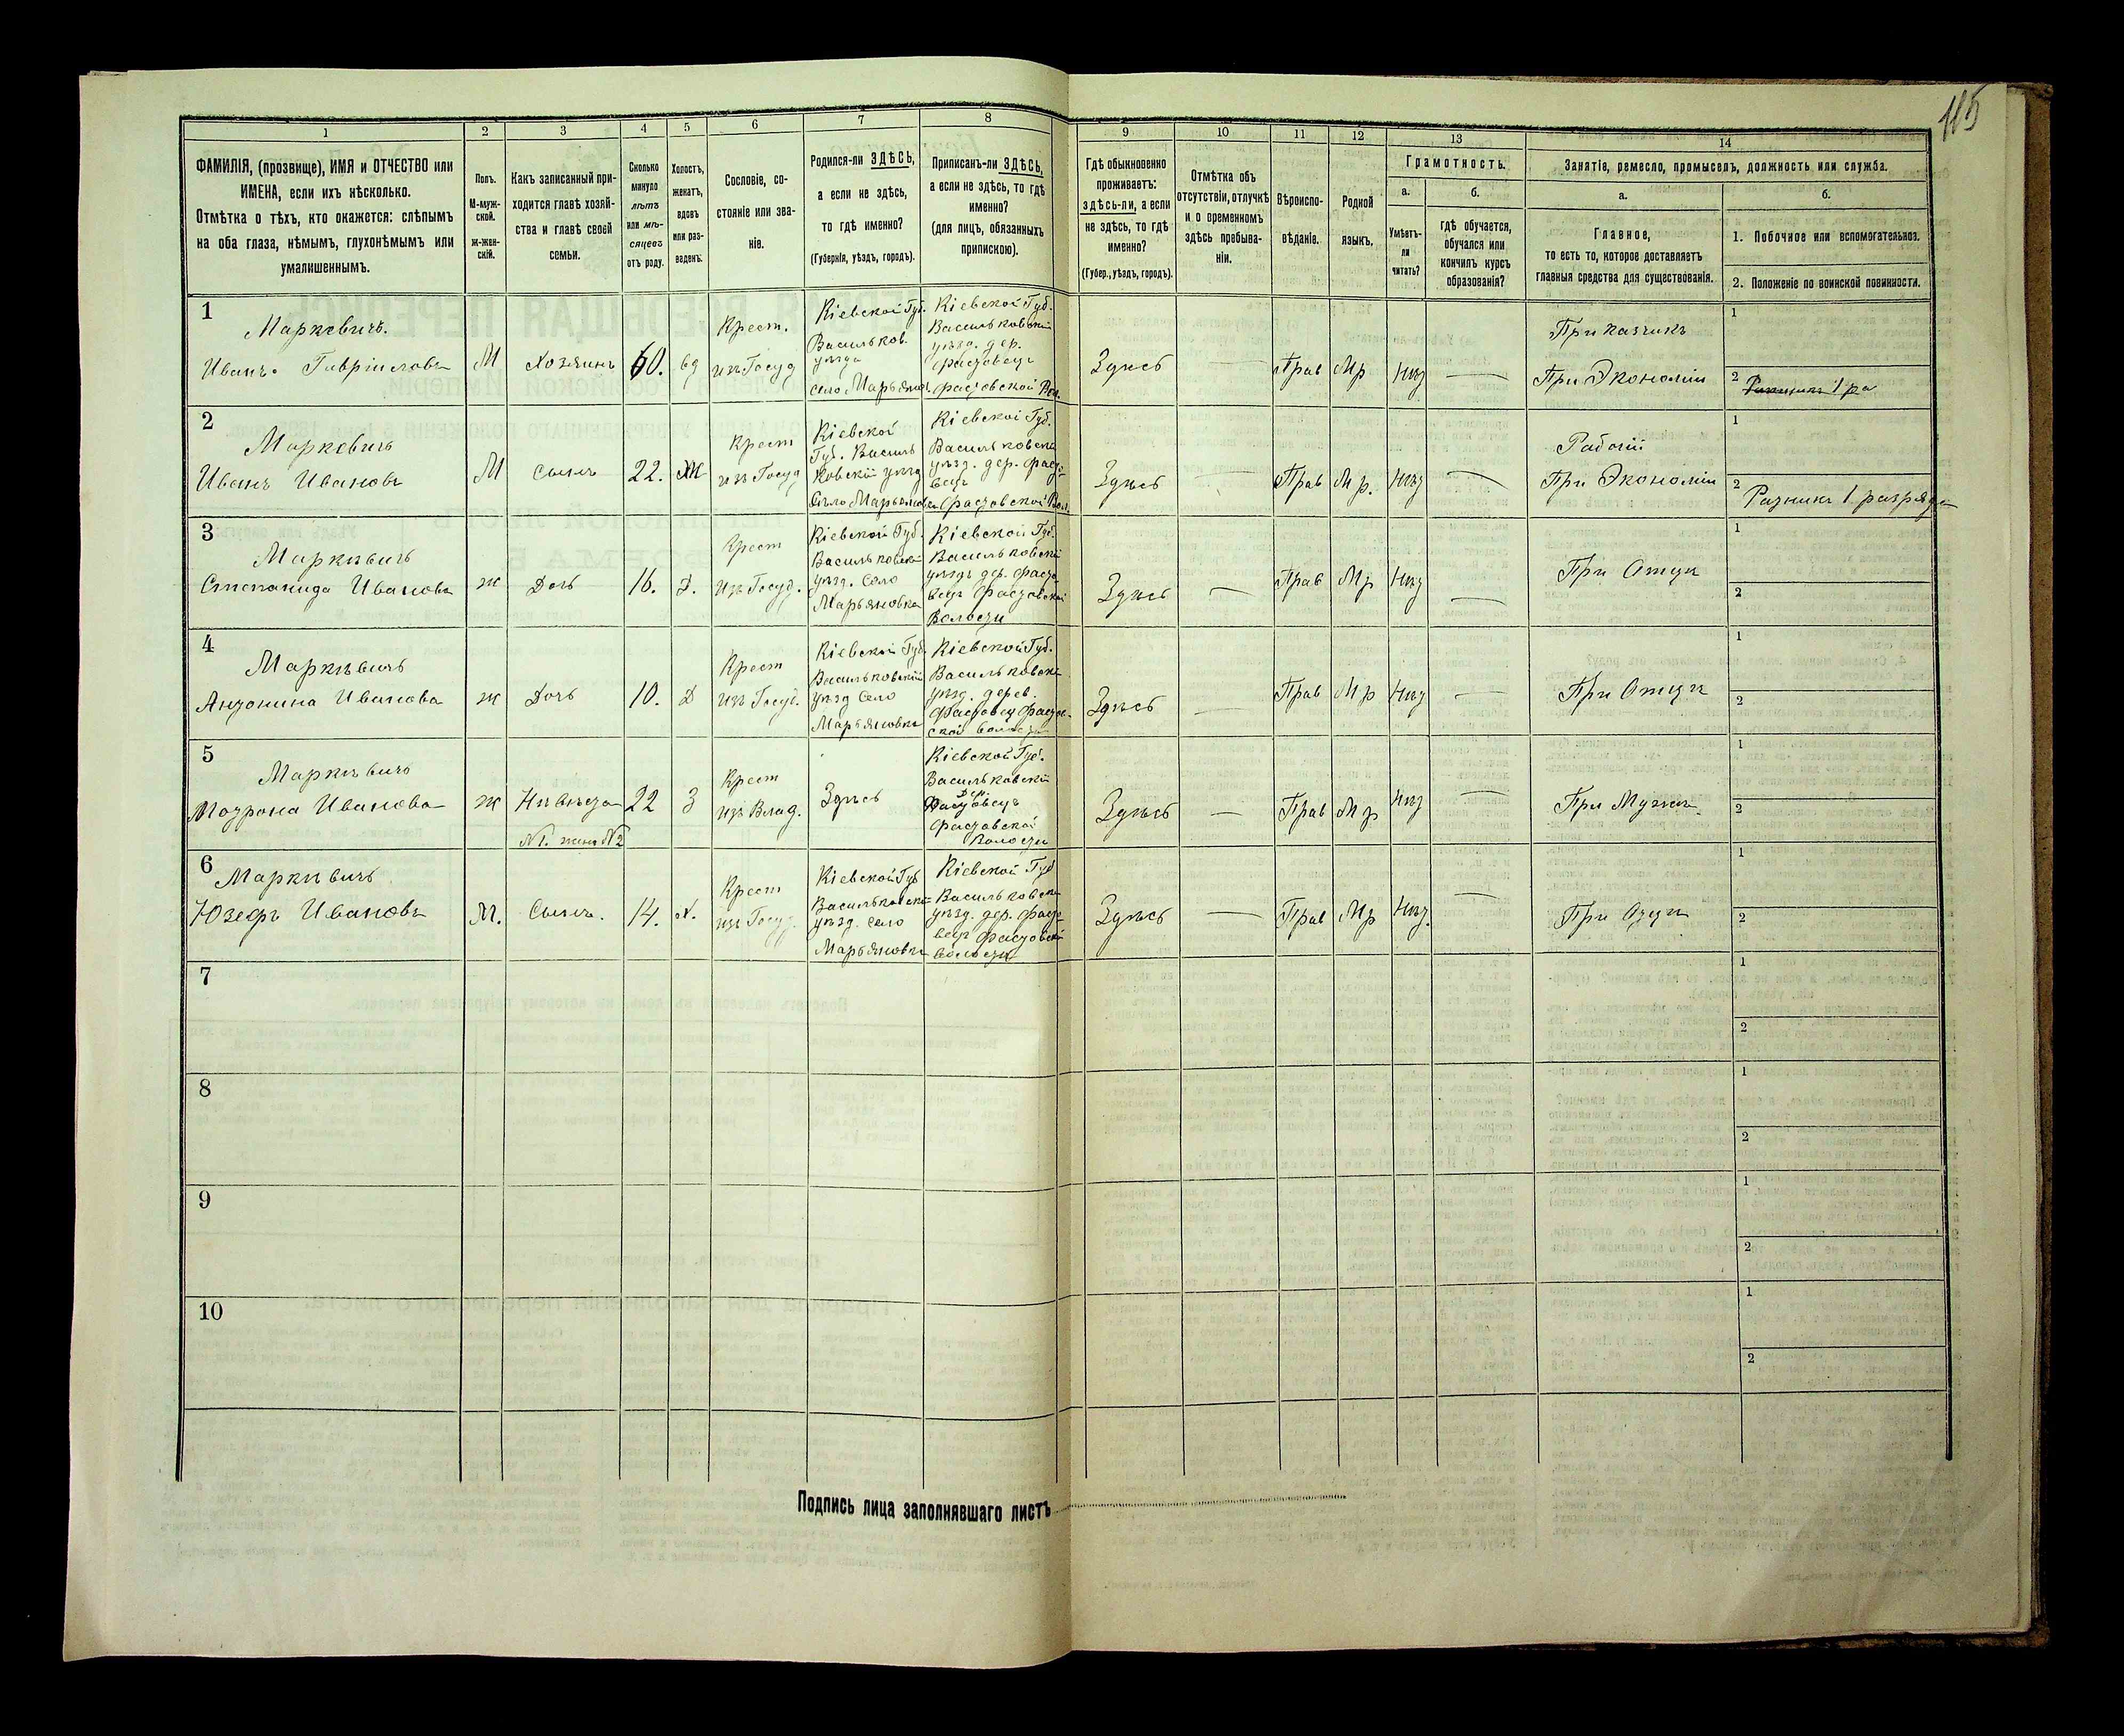 115
1
2
3
4
5
6
7
8
9
10
11
12
13
14
ФАМИЛІЯ, (прозвище), ИМЯ и ОТЧЕСТВО или
ИМЕНА, если ихъ нѣсколько.
Отмѣтка о тѣхъ, кто окажется: слѣпымъ
на оба глаза, нѣмымъ, глухонѣмымъ или
умалишеннымъ.
Полъ.
М-муж-
ской.
ж-жен-
скій.
Какъ записанный при-
ходится главѣ хозяй-
ства и главѣ своей
семьи.
Сколько
минуло
лѣтъ
или мѣ-
сяцевъ
отъ роду.
Холостъ,
женатъ,
вдовъ
или раз-
веденъ.
Сословіе, со-
стояніе или зва-
ніе.
Родился-ли ЗДѢСЬ,
а если не здѣсь,
то гдѣ именно?
(Губернія, уѣздъ, городъ).
Приписанъ-ли ЗДѢСЬ,
а если не здѣсь, то гдѣ
именно?
(для лицъ, обязанныхъ
припискою).
Гдѣ обыкновенно
проживаетъ:
здѣсь-ли, а если
не здѣсь, то гдѣ
именно?
(Губер., уѣздъ, городъ).
Отмѣтка объ
отсутствіи, отлучкѣ
и о временномъ
здѣсь пребыва-
ніи.
Вѣроиспо-
вѣданіе.
Родной
языкъ.
Грамотность.
а.
Умѣетъ-
ли
читать?
б.
гдѣ обучается,
обучался или
кончилъ курсъ
образованія?
Занятія, ремесло, промыселъ, должность или служба.
а.
Главное,
то есть то, которое доставляетъ
главныя средства для существованія.
б.
1. Побочное или вспомогательное.
2. Положеніе по воинской повинности.
1
Маркевичъ.
Иванъ Гавріиловъ
М
Хозяинъ
60.
вд
Крест.
изъ Госуд
Кіевской Губ.
Васильков.
уѣзда
село Марьяновк
Кіевской Губ.
Васильковскій
уѣзд. дер.
Фастовецъ
Фастовской Вол.
Здѣсь
Прав
Мр
Нѣт
Приказчикъ
При Экономіи
1
2
2
Маркевичъ
Иванъ Ивановъ
М
Сынъ
22.
Ж
Крест
изъ Госуд
Кіевской
Губ. Василь
ковскій уѣзд
Село Марьяновка
Кіевской Губ.
Васильковскій
уѣзд. дер. Фасто
вецъ
Фастовской Вол.
Здѣсь
Прав
Мр.
Нѣт
Рабочій
При Экономіи
1
2
Ратникъ 1 разряда
3
Маркѣвичъ
Степанида Иванова
ж
Дочь
16.
Д.
Крест
Изъ Госуд.
Кіевской Губ.
Васильковскій
уѣзд. Село
Марьяновка
Кіевской Губ.
Васильковскій
уѣздъ дер. Фасто
вецъ Фастовской
Волости
Здѣсь
Прав
Мр
Нѣт
При Отцѣ
1
2
4
Маркѣвичъ
Антонина Иванова
ж
Дочь
10.
Д
Крест
изъ Госуд.
Кіевской Губ.
Васильковскій
уѣзд Село
Марьяновка
Кіевской Губ.
Васильковскій
уѣзд. дерев.
Фастовец Фастов-
ской волости
Здѣсь
Прав
Мр
Нѣт
При Отцѣ
1
2
5
Маркѣвичъ
Мотрона Иванова
ж
Нѣвѣста
№1. жена №2
22
З
Крест
изъ Влад.
Здѣсь
Кіевской Губ.
Васильковскій
Дер.
Фастовецъ
Фастовской
Волости
Здѣсь
Прав
Мр
Нѣт
При Мужѣ
1
2
6
Маркѣвичъ
Юзефъ Ивановъ
М.
Сынъ.
14.
х.
Крест
изъ Госуд.
Кіевской Губ
Васильковскій
уѣзд. Село
Марьяновка
Кіевской Губ
Васильковскій
уѣзд. дер. Фасто
вецъ Фастовской
волости
Здѣсь
Прав
Мр
Нѣт.
При Отцѣ
1
2
7
1
2
8
1
2
9
1
2
10
1
2
Подпись лица заполнявшаго листъ